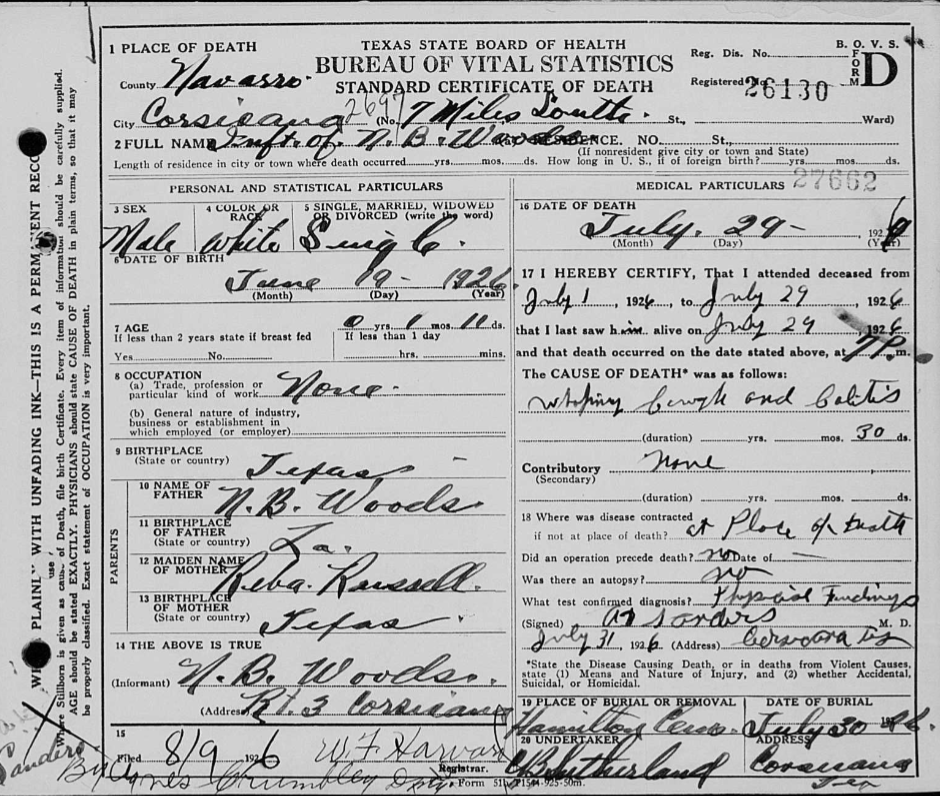 TEXAS STATE BOARD OF HEALTH
BUREAU OF VITAL STATISTICS
STANDARD CERTIFICATE OF DEATH
B. O. V. S.
FORM D
Reg. Dis. No.
Registered No. 26130
1 PLACE OF DEATH
County Navarro
City Corsicana 2697 (No. 7 Miles South. St., Ward)
2 FULL NAME Inft. of. N. B. Woods RESIDENCE. NO. St.,
(If nonresident give city or town and State)
Length of residence in city or town where death occurred yrs. mos. ds. How long in U. S., if of foreign birth? yrs. mos. ds.
PERSONAL AND STATISTICAL PARTICULARS
3 SEX 4 COLOR OR RACE 5 SINGLE, MARRIED, WIDOWED OR DIVORCED (write the word)
Male White Single.
6 DATE OF BIRTH
June 19- 1926
(Month) (Day) (Year)
7 AGE 0 yrs. 1 mos. 11 ds.
If less than 2 years state if breast fed If less than 1 day
Yes No. hrs. mins.
8 OCCUPATION
(a) Trade, profession or particular kind of work None.
(b) General nature of industry, business or establishment in which employed (or employer)
9 BIRTHPLACE
(State or country) Texas -
PARENTS
10 NAME OF FATHER N. B. Woods.
11 BIRTHPLACE OF FATHER
(State or country) La.
12 MAIDEN NAME OF MOTHER Reba. Russell.
13 BIRTHPLACE OF MOTHER
(State or country) Texas.
14 THE ABOVE IS TRUE
(Informant) N. B. Woods.
(Address) Rt. 3 Corsicana
15
8/9 1926 W. F. Harvard
Registrar.
Crumbley Dpty.
Form 511
MEDICAL PARTICULARS 27662
16 DATE OF DEATH
July. 29- 1926
(Month) (Day) (Year)
17 I HEREBY CERTIFY, That I attended deceased from
July 1, 1926, to July 29, 1926
that I last saw him alive on July 29 1926
and that death occurred on the date stated above, at 7 P. m.
The CAUSE OF DEATH* was as follows:
Whoping Cough and Colitis
(duration) yrs. mos. 30 ds.
Contributory None
(Secondary)
(duration) yrs. mos. ds.
18 Where was disease contracted
if not at place of death? at Place of Death
Did an operation precede death? no Date of —
Was there an autopsy? no
What test confirmed diagnosis? Physical Findings
(Signed) Sanders M. D.
July 31, 1926 (Address) Corsicana Tex
*State the Disease Causing Death, or in deaths from Violent Causes, state (1) Means and Nature of Injury, and (2) whether Accidental, Suicidal, or Homicidal.
19 PLACE OF BURIAL OR REMOVAL DATE OF BURIAL
Hamilton Cem. July 30 1926.
20 UNDERTAKER ADDRESS
Sutherland Corsicana Tex
WRITE PLAINLY WITH UNFADING INK—THIS IS A PERMANENT RECORD
Where Stillborn is given as cause of Death, file birth Certificate. Every item of information should be carefully supplied.
AGE should be stated EXACTLY. PHYSICIANS should state CAUSE OF DEATH in plain terms, so that it may
be properly classified. Exact statement of OCCUPATION is very important.
use
Sanders